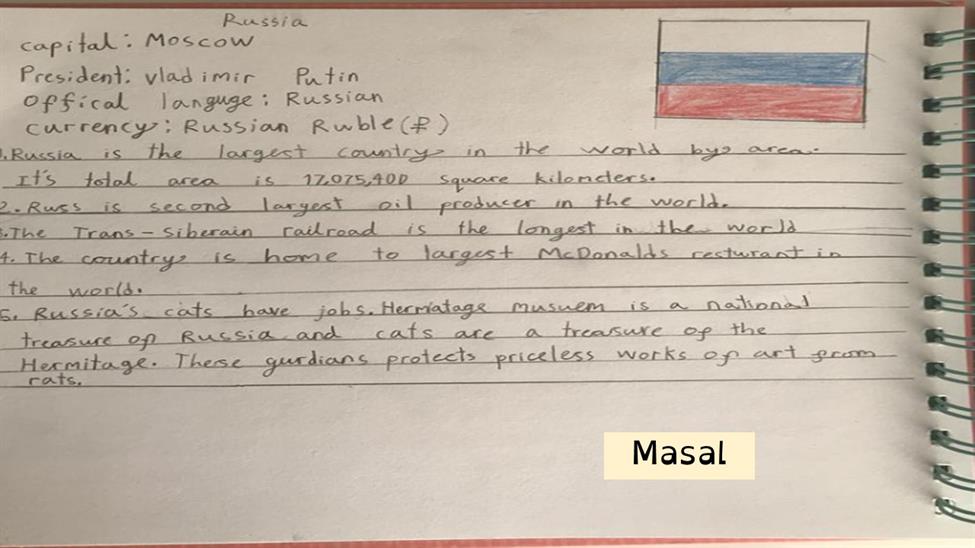 Russia
capital: Moscow
President: vladimir Putin
offical languge: Russian
currency: Russian Ruble(₽)
1.Russia is the largest country in the world by area.
It's total area is 17,075,400 square kilometers.
2. Russ is second largest oil producer in the world.
3.The Trans-Siberain railroad is the longest in the world
4. The country is home to largest McDonalds resturant in
the world.
5. Russia's cats have jobs. Hermatage musuem is a national
treasure of Russia and cats are a treasure of the
Hermitage. These gurdians protects priceless works of art from
rats.
Masal